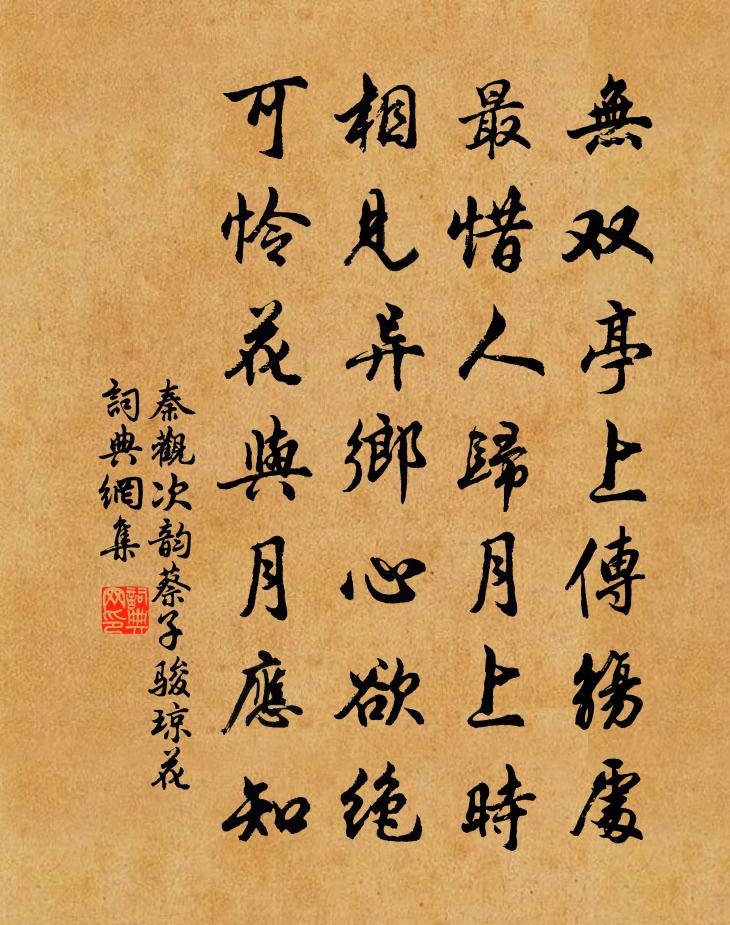 無双亭上傳觴處
最惜人歸月上時
相見异鄉心欲绝
可怜花與月應知
秦觀次韵蔡子骏琼花
詞典網集
詞典网印